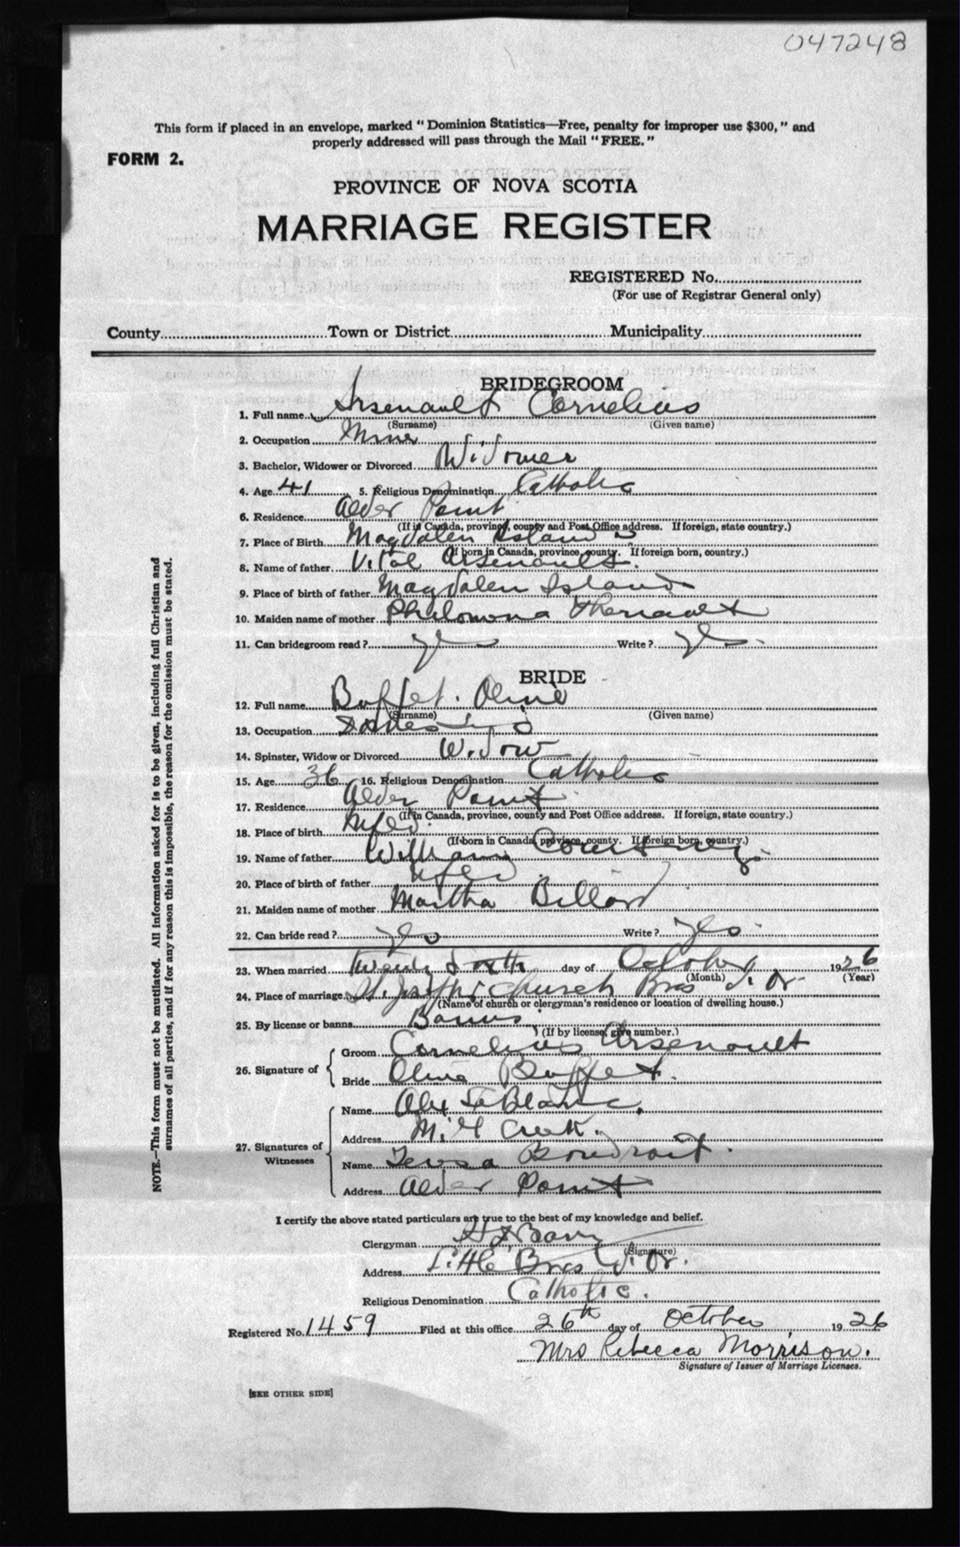 047248
This form if placed in an envelope, marked "Dominion Statistics—Free, penalty for improper use $300," and
properly addressed will pass through the Mail "FREE."
FORM 2.
PROVINCE OF NOVA SCOTIA
MARRIAGE REGISTER
REGISTERED No.
(For use of Registrar General only)
County Town or District Municipality
BRIDEGROOM
1. Full name Arsenault Cornelius
(Surname) (Given name)
2. Occupation Miner
3. Bachelor, Widower or Divorced Widower
4. Age 41 5. Religious Denomination Catholic
6. Residence Alder Point
(If in Canada, province, county and Post Office address. If foreign, state country.)
7. Place of Birth Magdalen Islands
(If born in Canada, province, county. If foreign born, country.)
8. Name of father Vital Arsenault.
9. Place of birth of father Magdalen Island
10. Maiden name of mother Philomena Theriault
11. Can bridegroom read? yes Write? yes
BRIDE
12. Full name Buffet. Olive
(Surname) (Given name)
13. Occupation
14. Spinster, Widow or Divorced Widow
15. Age 36 16. Religious Denomination Catholic
17. Residence Alder Point
(If in Canada, province, county and Post Office address. If foreign, state country.)
18. Place of birth Nfld.
(If born in Canada, province, county. If foreign born, country.)
19. Name of father William Courtney
20. Place of birth of father Nfld
21. Maiden name of mother Martha Billard
22. Can bride read? yes Write? yes
23. When married Twenty Sixth day of October 1926
(Month) (Year)
24. Place of marriage St. Joseph's Church Bras d'Or
(Name of church or clergyman's residence or location of dwelling house.)
25. By license or banns Banns
(If by license, give number.)
26. Signature of
Groom Cornelius Arsenault
Bride Olive Buffet.
27. Signatures of Witnesses
Name Alex LeBlanc.
Address Mill Creek.
Name Teresa Boudroit.
Address Alder Point
I certify the above stated particulars are true to the best of my knowledge and belief.
Clergyman
(Signature)
Address Little Bras d'Or.
Religious Denomination Catholic.
Registered No. 1459 Filed at this office 26th day of October, 1926
Mrs Rebecca Morrison.
Signature of Issuer of Marriage Licenses.
[SEE OTHER SIDE]
NOTE.—This form must not be mutilated. All information asked for is to be given, including full Christian and
surnames of all parties, and if for any reason this is impossible, the reason for the omission must be stated.